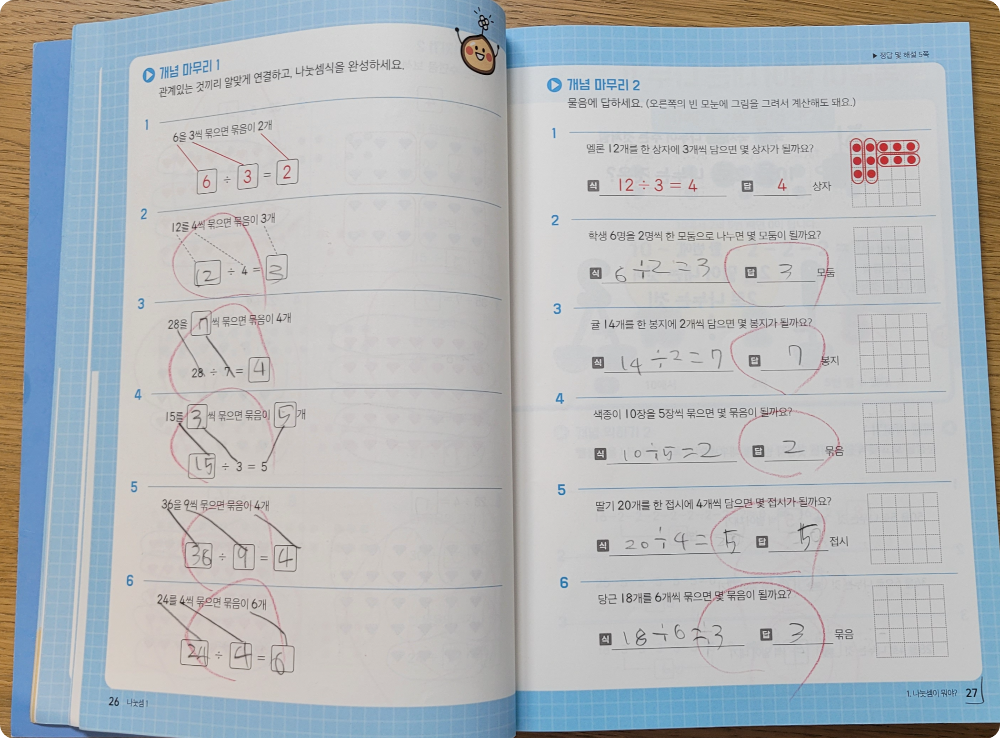 개념 마무리 1
관계있는 것끼리 알맞게 연결하고, 나눗셈식을 완성하세요.
1
6을 3씩 묶으면 묶음이 2개
6 ÷ 3 = 2
2
12를 4씩 묶으면 묶음이 3개
12 ÷ 4 = 3
3
28을 7씩 묶으면 묶음이 4개
28 ÷ 7 = 4
4
15를 3씩 묶으면 묶음이 5개
15 ÷ 3 = 5
5
36을 9씩 묶으면 묶음이 4개
36 ÷ 9 = 4
6
24를 4씩 묶으면 묶음이 6개
24 ÷ 4 = 6
26 나눗셈 1
▶ 정답 및 해설 5쪽
개념 마무리 2
물음에 답하세요. (오른쪽의 빈 모눈에 그림을 그려서 계산해도 돼요.)
1
멜론 12개를 한 상자에 3개씩 담으면 몇 상자가 될까요?
식 12÷3=4 답 4 상자
2
학생 6명을 2명씩 한 모둠으로 나누면 몇 모둠이 될까요?
식 6÷2=3 답 3 모둠
3
귤 14개를 한 봉지에 2개씩 담으면 몇 봉지가 될까요?
식 14÷2=7 답 7 봉지
4
색종이 10장을 5장씩 묶으면 몇 묶음이 될까요?
식 10÷5=2 답 2 묶음
5
딸기 20개를 한 접시에 4개씩 담으면 몇 접시가 될까요?
식 20÷4=5 답 5 접시
6
당근 18개를 6개씩 묶으면 몇 묶음이 될까요?
식 18÷6=3 답 3 묶음
1. 나눗셈이 뭐야? 27